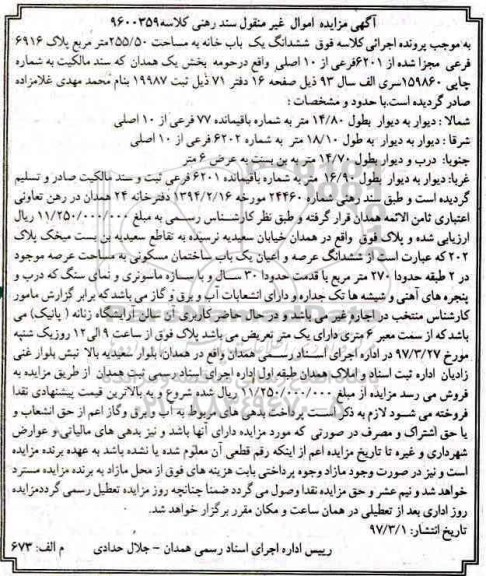 آگهی مزایده اموال غیر منقول سند رهنی کلاسه ۹۶۰۰۳۵۹
به موجب پرونده اجرائی کلاسه فوق ششدانگ یک باب خانه به مساحت ۲۵۵/۵۰متر مربع پلاک ۶۹۱۶
فرعی مجزا شده از ۶۲۰۱فرعی از ۱۰ اصلی واقع درحومه بخش یک همدان که سند مالکیت به شماره
چاپی ۱۵۹۸۶۰سری الف سال ۹۳ ذیل صفحه ۱۶ دفتر ۷۱ ذیل ثبت ۱۹۹۸۷ بنام محمد مهدی غلامزاده
صادر گردیده است.با حدود و مشخصات :
شمالا : دیوار به دیوار بطول ۱۴/۸۰ متر به شماره باقیمانده ۷۷ فرعی از ۱۰ اصلی
شرقا : دیوار به دیوار به طول ۱۸/۱۰ متر به شماره ۶۲۰۲ فرعی از ۱۰ اصلی
جنوبا: درب و دیوار بطول ۱۴/۷۰ متر به بن بست به عرض ۶ متر
غربا: دیوار به دیوار بطول ۱۶/۹۰ متر به شماره باقیمانده ۶۲۰۱ فرعی ثبت و سند مالکیت صادر و تسلیم
گردیده است و طبق سند رهنی شماره ۲۴۴۶۰ مورخه ۱۳۹۴/۲/۱۶ دفترخانه ۲۴ همدان در رهن تعاونی
اعتباری ثامن الائمه همدان قرار گرفته و طبق نظر کارشناس رسمی به مبلغ ۱۱/۲۵۰/۰۰۰/۰۰۰ ریال
ارزیابی شده و پلاک فوق واقع در همدان خیابان سعیدیه نرسیده به تقاطع سعیدیه بن بست میخک پلاک
۲۰۲ که عبارت است از ششدانگ عرصه و اعیان یک باب ساختمان مسکونی به مساحت عرصه موجود
در ۲ طبقه حدودا ۲۷۰ متر مربع با قدمت حدودا ۳۰ سال و با سازه ماسونری و نمای سنگ که درب و
پنجره های آهنی و شیشه ها تک جداره و دارای انشعابات آب و برق و گاز می باشد که برابر گزارش مامور
کارشناس منتخب در اجاره غیر می باشد و در حال حاضر کاربری آن سالن آرایشگاه زنانه ( پانیک) می
باشد که از سمت معبر ۶ متری دارای یک متر تعریض می باشد پلاک فوق از ساعت ۹ الی ۱۲ روزیک شنبه
مورخ ۹۷/۳/۲۷ در اداره اجرای اسناد رسمی همدان واقع در همدان، بلوار سعیدیه بالا نبش بلوار غنی
زادیان اداره ثبت اسناد و املاک همدان طبقه اول اداره اجرای اسناد رسمی ثبت همدان از طریق مزایده به
فروش می رسد مزایده از مبلغ ۱۱/۲۵۰/۰۰۰/۰۰۰ ریال شده شروع و به بالاترین قیمت پیشنهادی نقدا
فروخته می شود لازم به ذکر است پرداخت بدهی های مربوط به آب و برق وگاز اعم از حق انشعاب و
یا حق اشتراک و مصرف در صورتی که مورد مزایده دارای آنها باشد و نیز بدهی های مالیاتی و عوارض
شهرداری و غیره تا تاریخ مزایده اعم از اینکه رقم قطعی آن معلوم شده یا نشده باشد به عهده برنده مزایده
است و نیز در صورت وجود مازاد وجوه پرداختی بابت هزینه های فوق از محل مازاد به برنده مزایده مسترد
خواهد شد و نیم عشر و حق مزایده نقدا وصول می گردد ضمنا چنانچه روز مزایده تعطیل رسمی گرددمزایده
روز اداری بعد از تعطیلی در همان ساعت و مکان مقرر برگزار خواهد شد.
تاریخ انتشار: ۹۷/۳/۱
رییس اداره اجرای اسناد رسمی همدان - جلال حدادی م الف: ۶۷۳